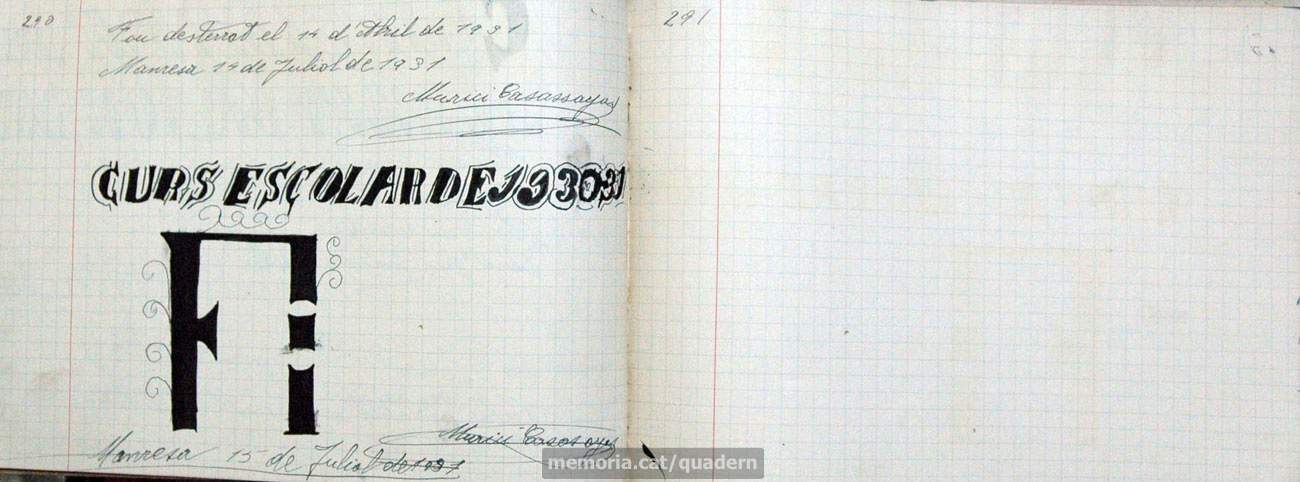 290
Fou desterrat el 14 d'Abril de 1931
Manresa 14 de Juliol de 1931
Murici Casassayas
CURS ESCOLAR DE 1930 31
FI
Manresa 15 de Juliol de 1931
Murici Casasayas
291
memoria.cat/quadern